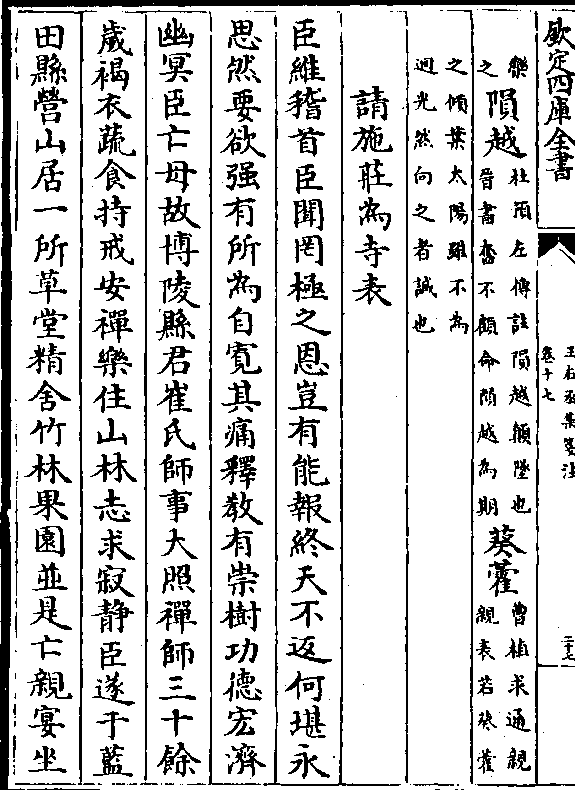 欽定四庫全書
王右丞集箋注
卷十七
二十七
樂
之
隕越
杜預左傳註隕越顛墜也
晉書奮不顧命隕越為期
葵藿
曹植求通親
親表若葵藿
之傾葉太陽雖不為
迴光然向之者誠也
請施莊為寺表
臣維稽首臣聞罔極之恩豈有能報終天不返何堪永
思然要欲强有所為自寛其痛釋教有崇樹功德宏濟
幽冥臣亡母故博陵縣君崔氏師事大照禪師三十餘
歲褐衣蔬食持戒安禪樂住山林志求寂静臣遂于藍
田縣營山居一所草堂精舍竹林果園並是亡親宴坐